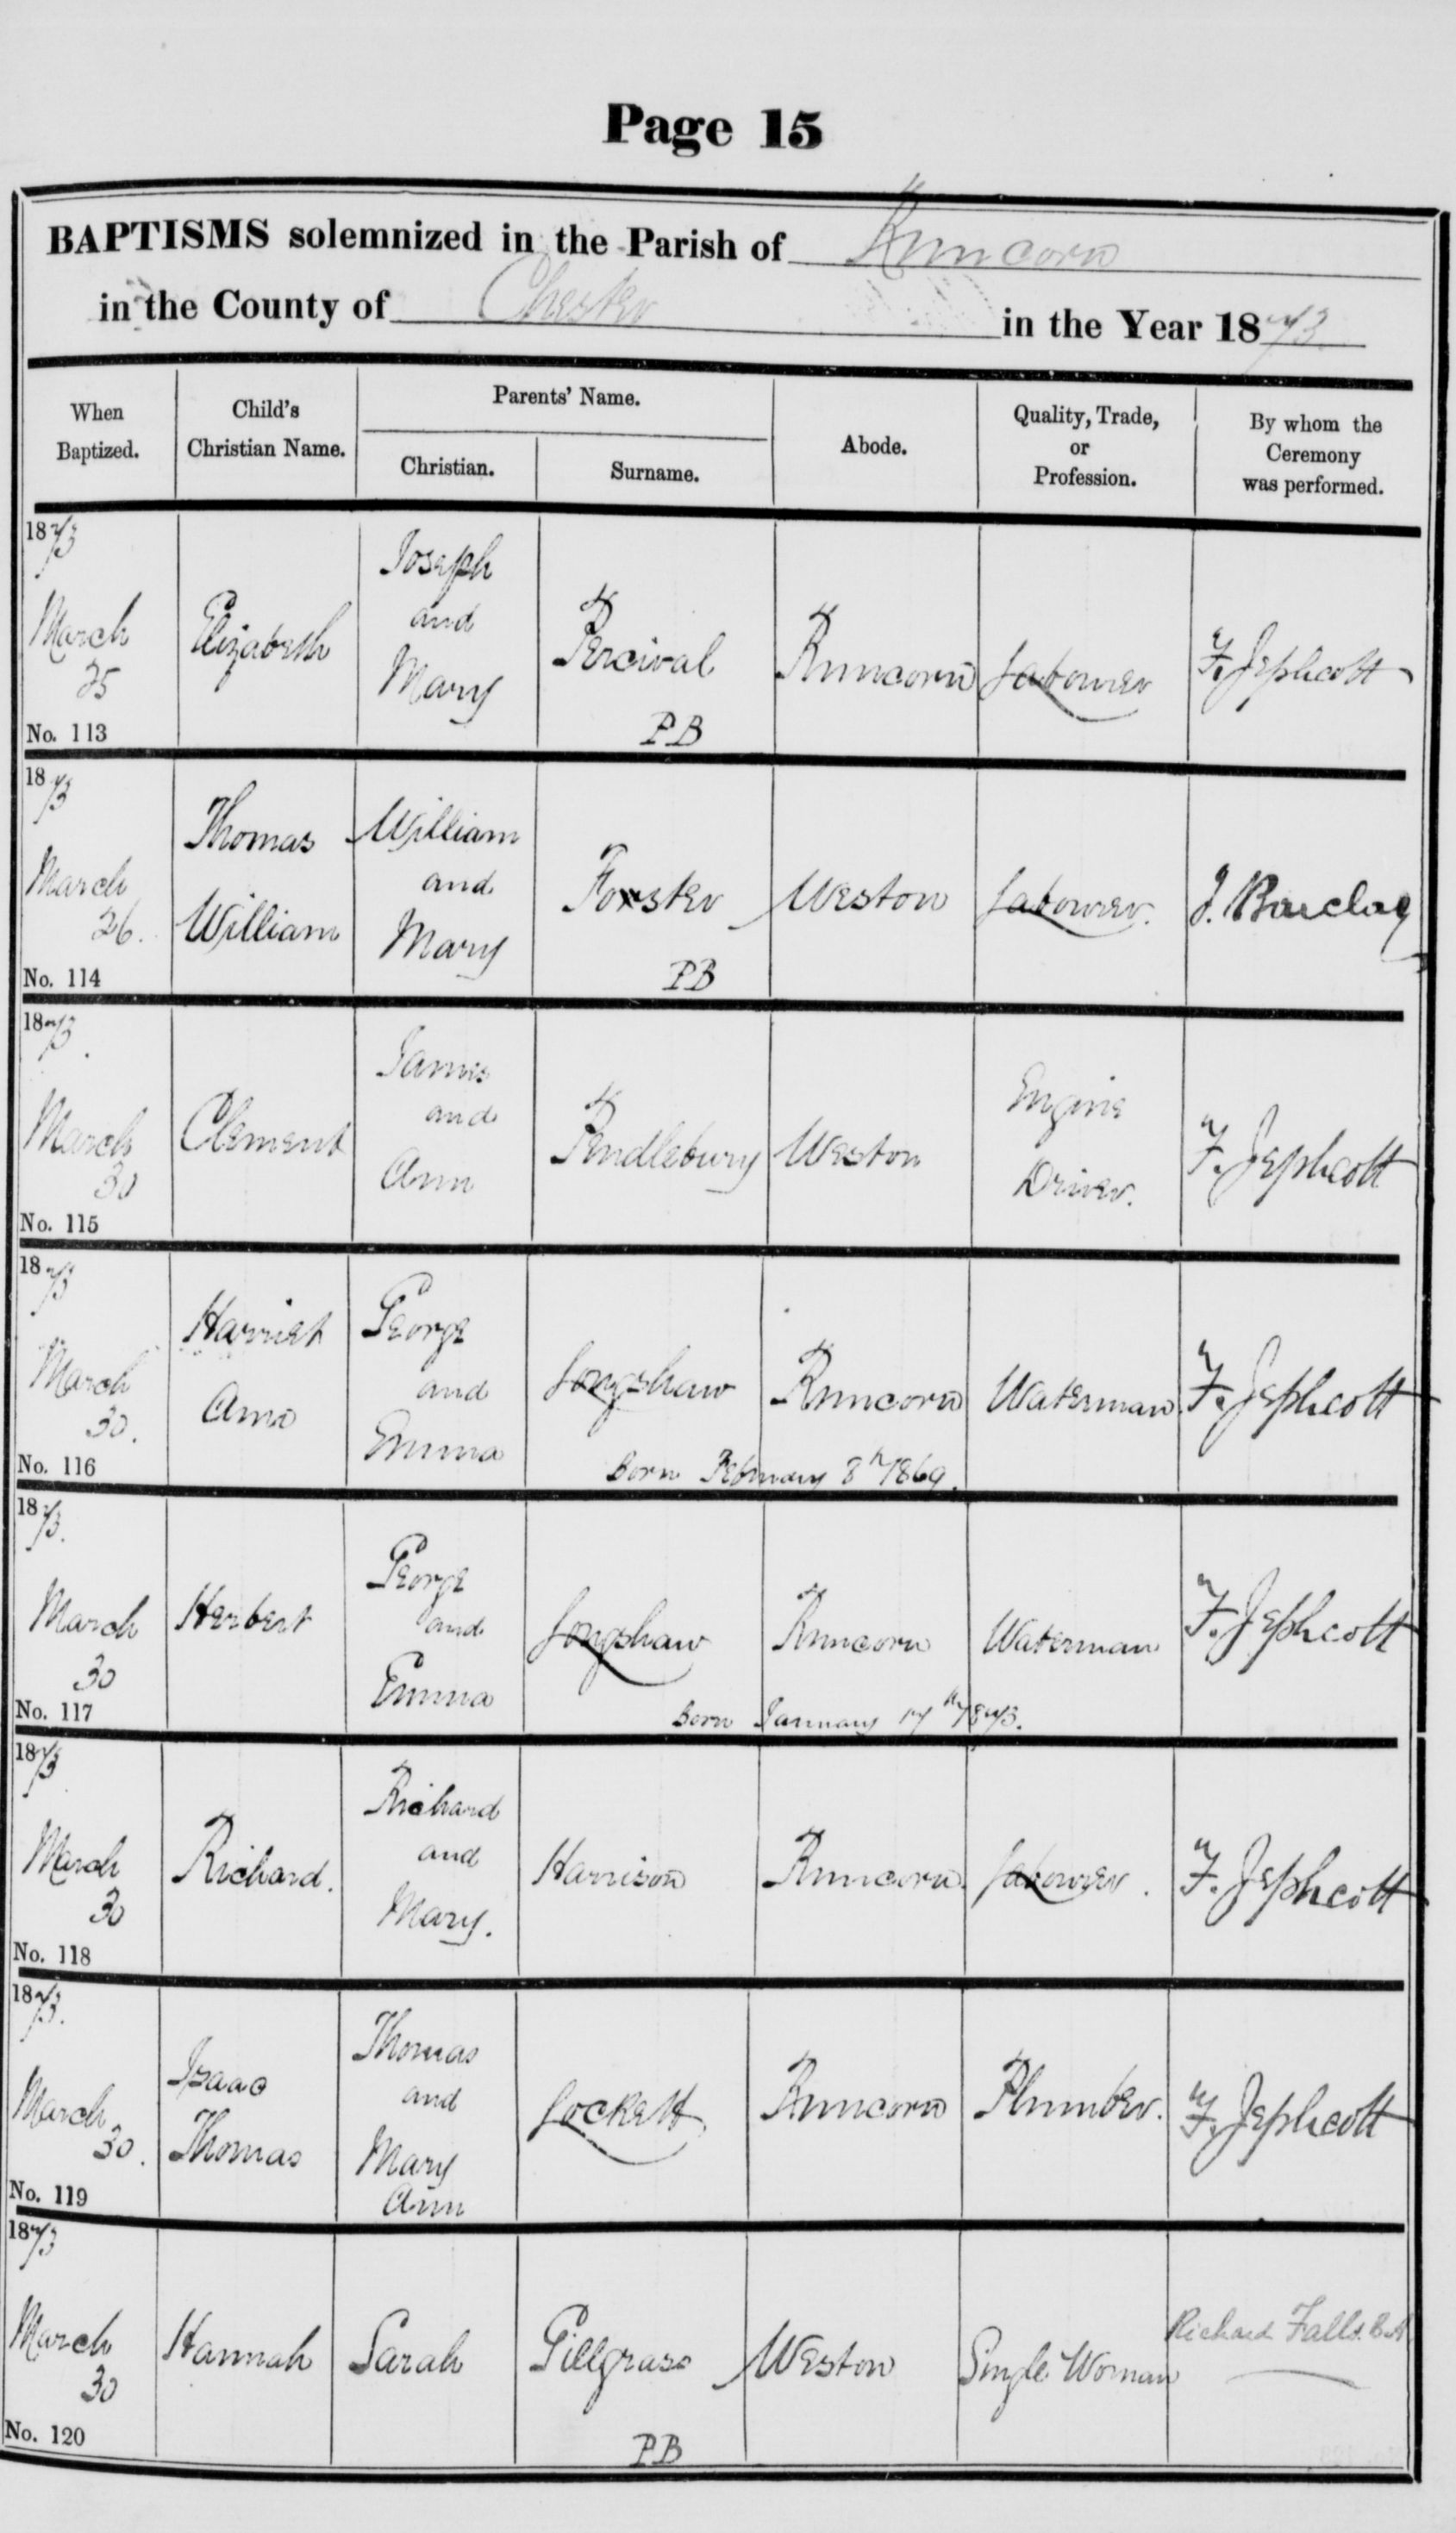 Page 15
BAPTISMS solemnized in the Parish of Runcorn
in the County of Chester in the Year 1873
When Baptized. Child's Christian Name. Parents' Name. Christian. Surname. Abode. Quality, Trade, or Profession. By whom the Ceremony was performed.
1873
March 25
No. 113
Elizabeth
Joseph and Mary
Percival
PB
Runcorn
Labourer
F. Jephcott
1873
March 26.
No. 114
Thomas William
William and Mary
Forster
PB
Weston
Labourer.
J. Barclay
1873.
March 30
No. 115
Clement
James and Ann
Pendlebury
Weston
Engine Driver.
F. Jephcott
1873
March 30.
No. 116
Harriet Ann
George and Emma
Longshaw
Runcorn
Waterman
F. Jephcott
Born February 8th 1869.
1873.
March 30
No. 117
Herbert
George and Emma
Longshaw
Runcorn
Waterman
F. Jephcott
Born January 17th 1873.
1873
March 30
No. 118
Richard.
Richard and Mary.
Harrison
Runcorn
Labourer.
F. Jephcott
1873.
March 30.
No. 119
Isaac Thomas
Thomas and Mary Ann
Lockett
Runcorn
Plumber.
F. Jephcott
1873
March 30
No. 120
Hannah
Sarah
Pillgrass
PB
Weston
Single Woman
Richard Falls. B.A.